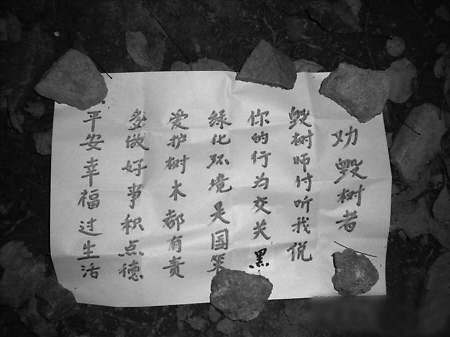 劝毁树者
毁树师付听我说
你的行为交关黑
绿化环境是国策
爱护树木都有责
做好事积点德
平安幸福过生活